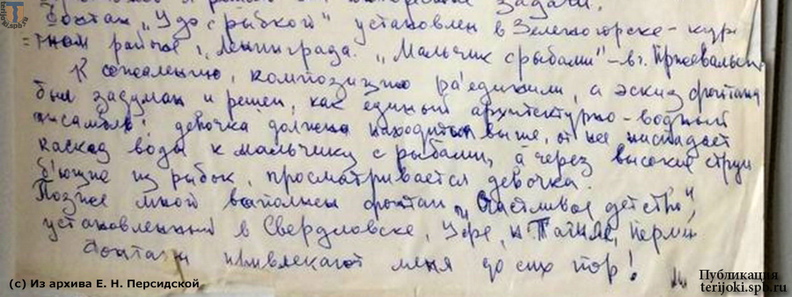 задачи.
Фонтан „Удо с рыбкой" установлен в Зеленогорске - кур-
= тном районе, Ленинграда. „Мальчик с рыбами" – в г. Пржевальск
К сожалению, композицию разъединили, а эскиз фонтана
был задуман и решен, как единый архитектурно-водный
ансамбль: девочка должна находиться выше, от нее ниспадает
каскад воды к мальчику с рыбами, а через высокие струи
бьющие из рыбок, просматривается девочка.
Позже мной выполнен фонтан „Счастливое детство",
установленный в Свердловске, Уфе, Н Тагиле, Перми
Фонтаны привлекают меня до сих пор!
(c) Из архива Е. Н. Персидской
Публикация
terijoki.spb.ru